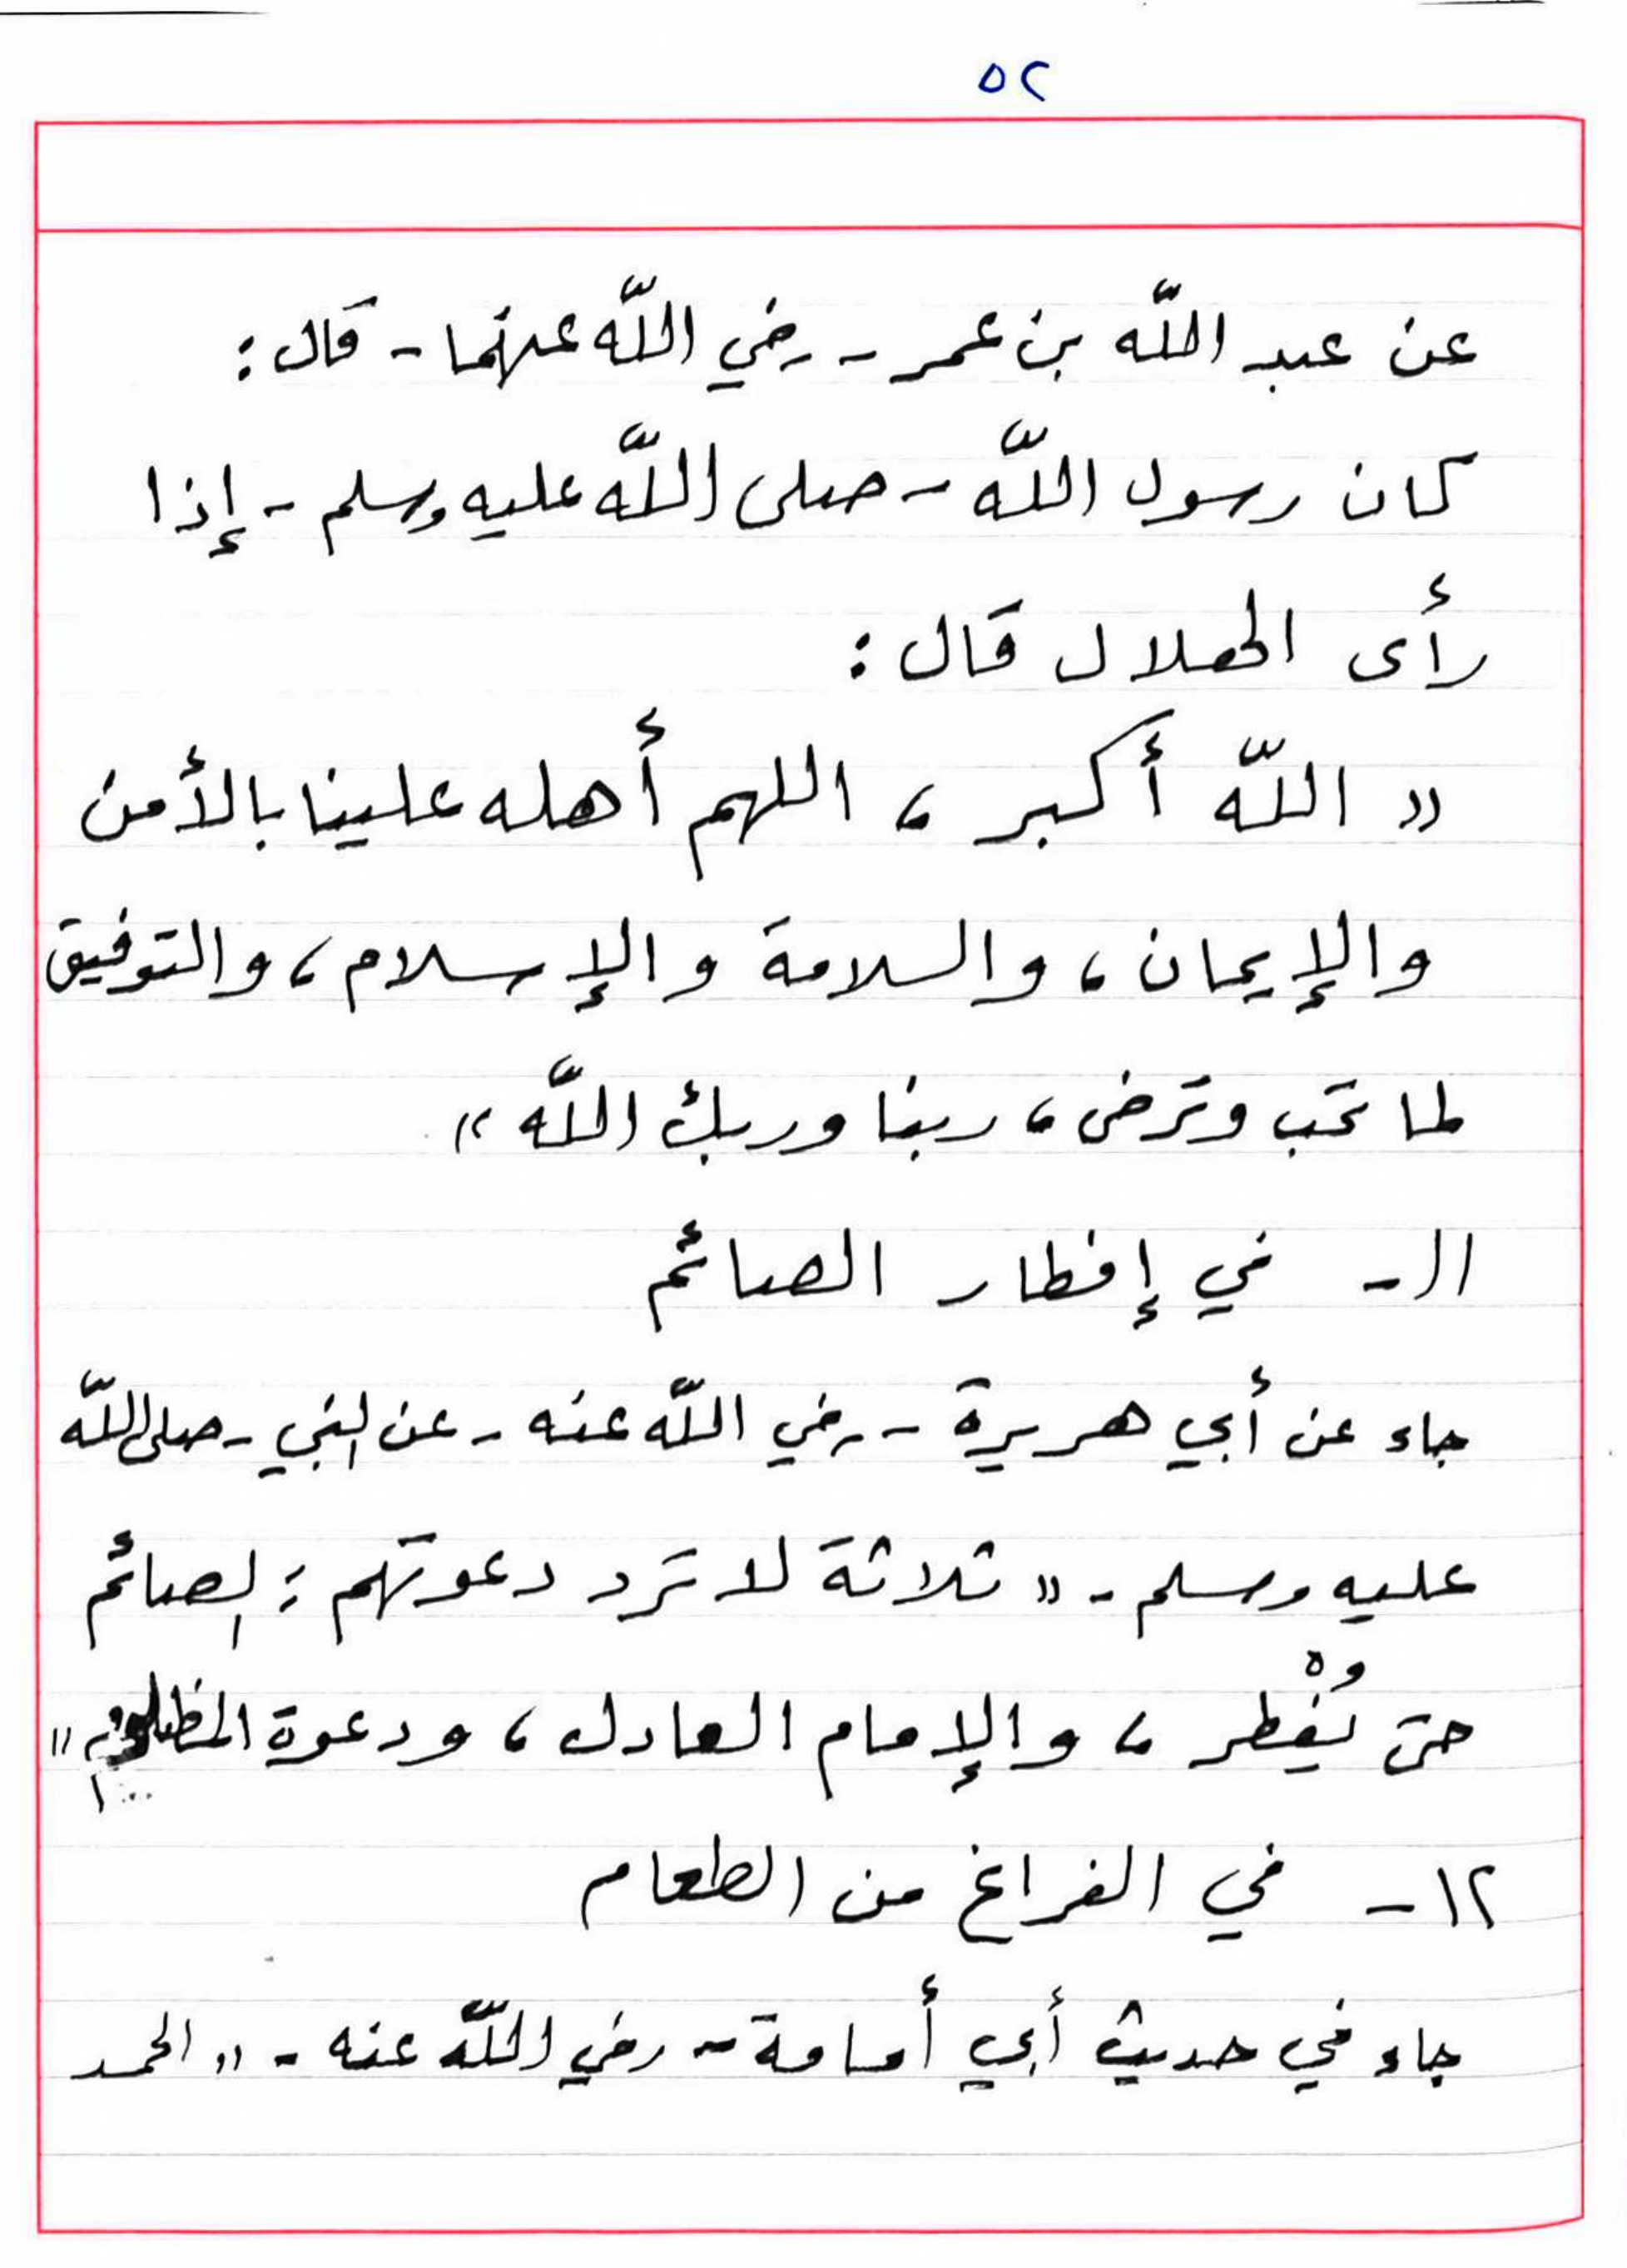 ٥٢
عن عبد اللّه بن عمر - رضي اللّه عنهما - قال :
كان رسول اللّه - صلى اللّه عليه وسلم - إذا
رأى الهلال قال :
« اللّه أكبر ، اللهم أهله علينا بالأمن
والإيمان ، والسلامة والإسلام ، والتوفيق
لما تحب وترضى ، ربنا وربك اللّه »
١١- في إفطار الصائم
جاء عن أبي هريرة - رضي اللّه عنه - عن النبي - صلى اللّه
عليه وسلم - « ثلاثة لا ترد دعوتهم : الصائم
حتى يُفْطِر ، والإمام العادل ، ودعوة المظلوم »
١٢- في الفراغ من الطعام
جاء في حديث أبي أمامة - رضي اللّه عنه - « الحمد